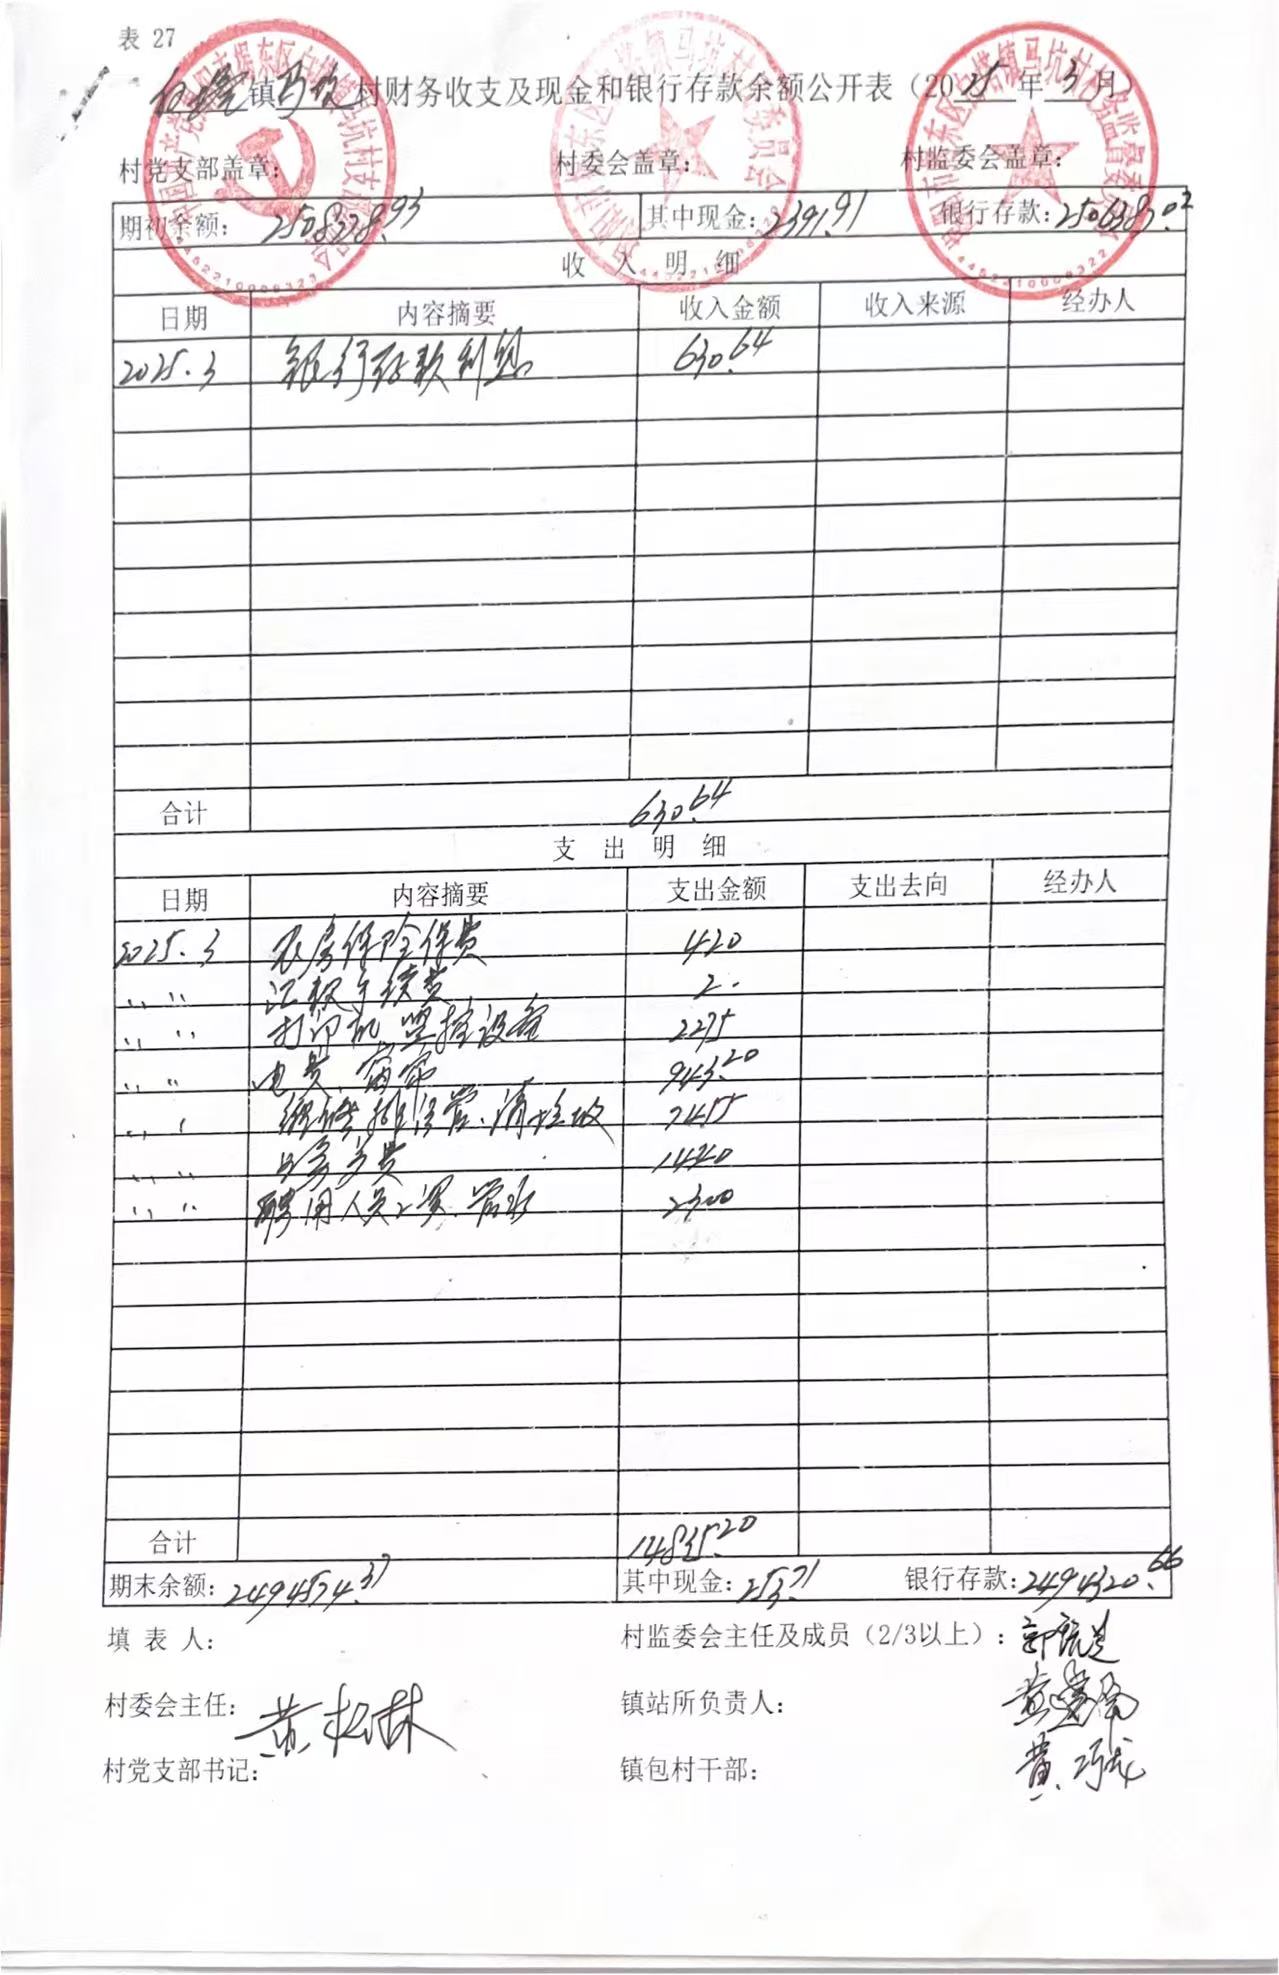 表 27
白塔镇马坑村财务收支及现金和银行存款余额公开表（2025年3月）
村党支部盖章： 村委会盖章： 村监委会盖章：
期初余额：2508778.93 其中现金：2391.91 银行存款：2506387.02
收 入 明 细
日期 内容摘要 收入金额 收入来源 经办人
2025.3 银行存款利息 630.64
合计 630.64
支 出 明 细
日期 内容摘要 支出金额 支出去向 经办人
2025.3 农房保险保费 420
〃 〃 汇款手续费 2.
〃 〃 打印机、监控设备 2275
〃 〃 电费、窗帘 943.20
〃 〃 维修排污管、清垃圾 7455
〃 〃 1440
〃 〃 聘用人员工资、管水 2300
合计 14835.20
期末余额：2494574.37 其中现金：253.71 银行存款：2494320.66
填 表 人： 村监委会主任及成员（2/3以上）：
村委会主任：黄松林 镇站所负责人：
村党支部书记： 镇包村干部：